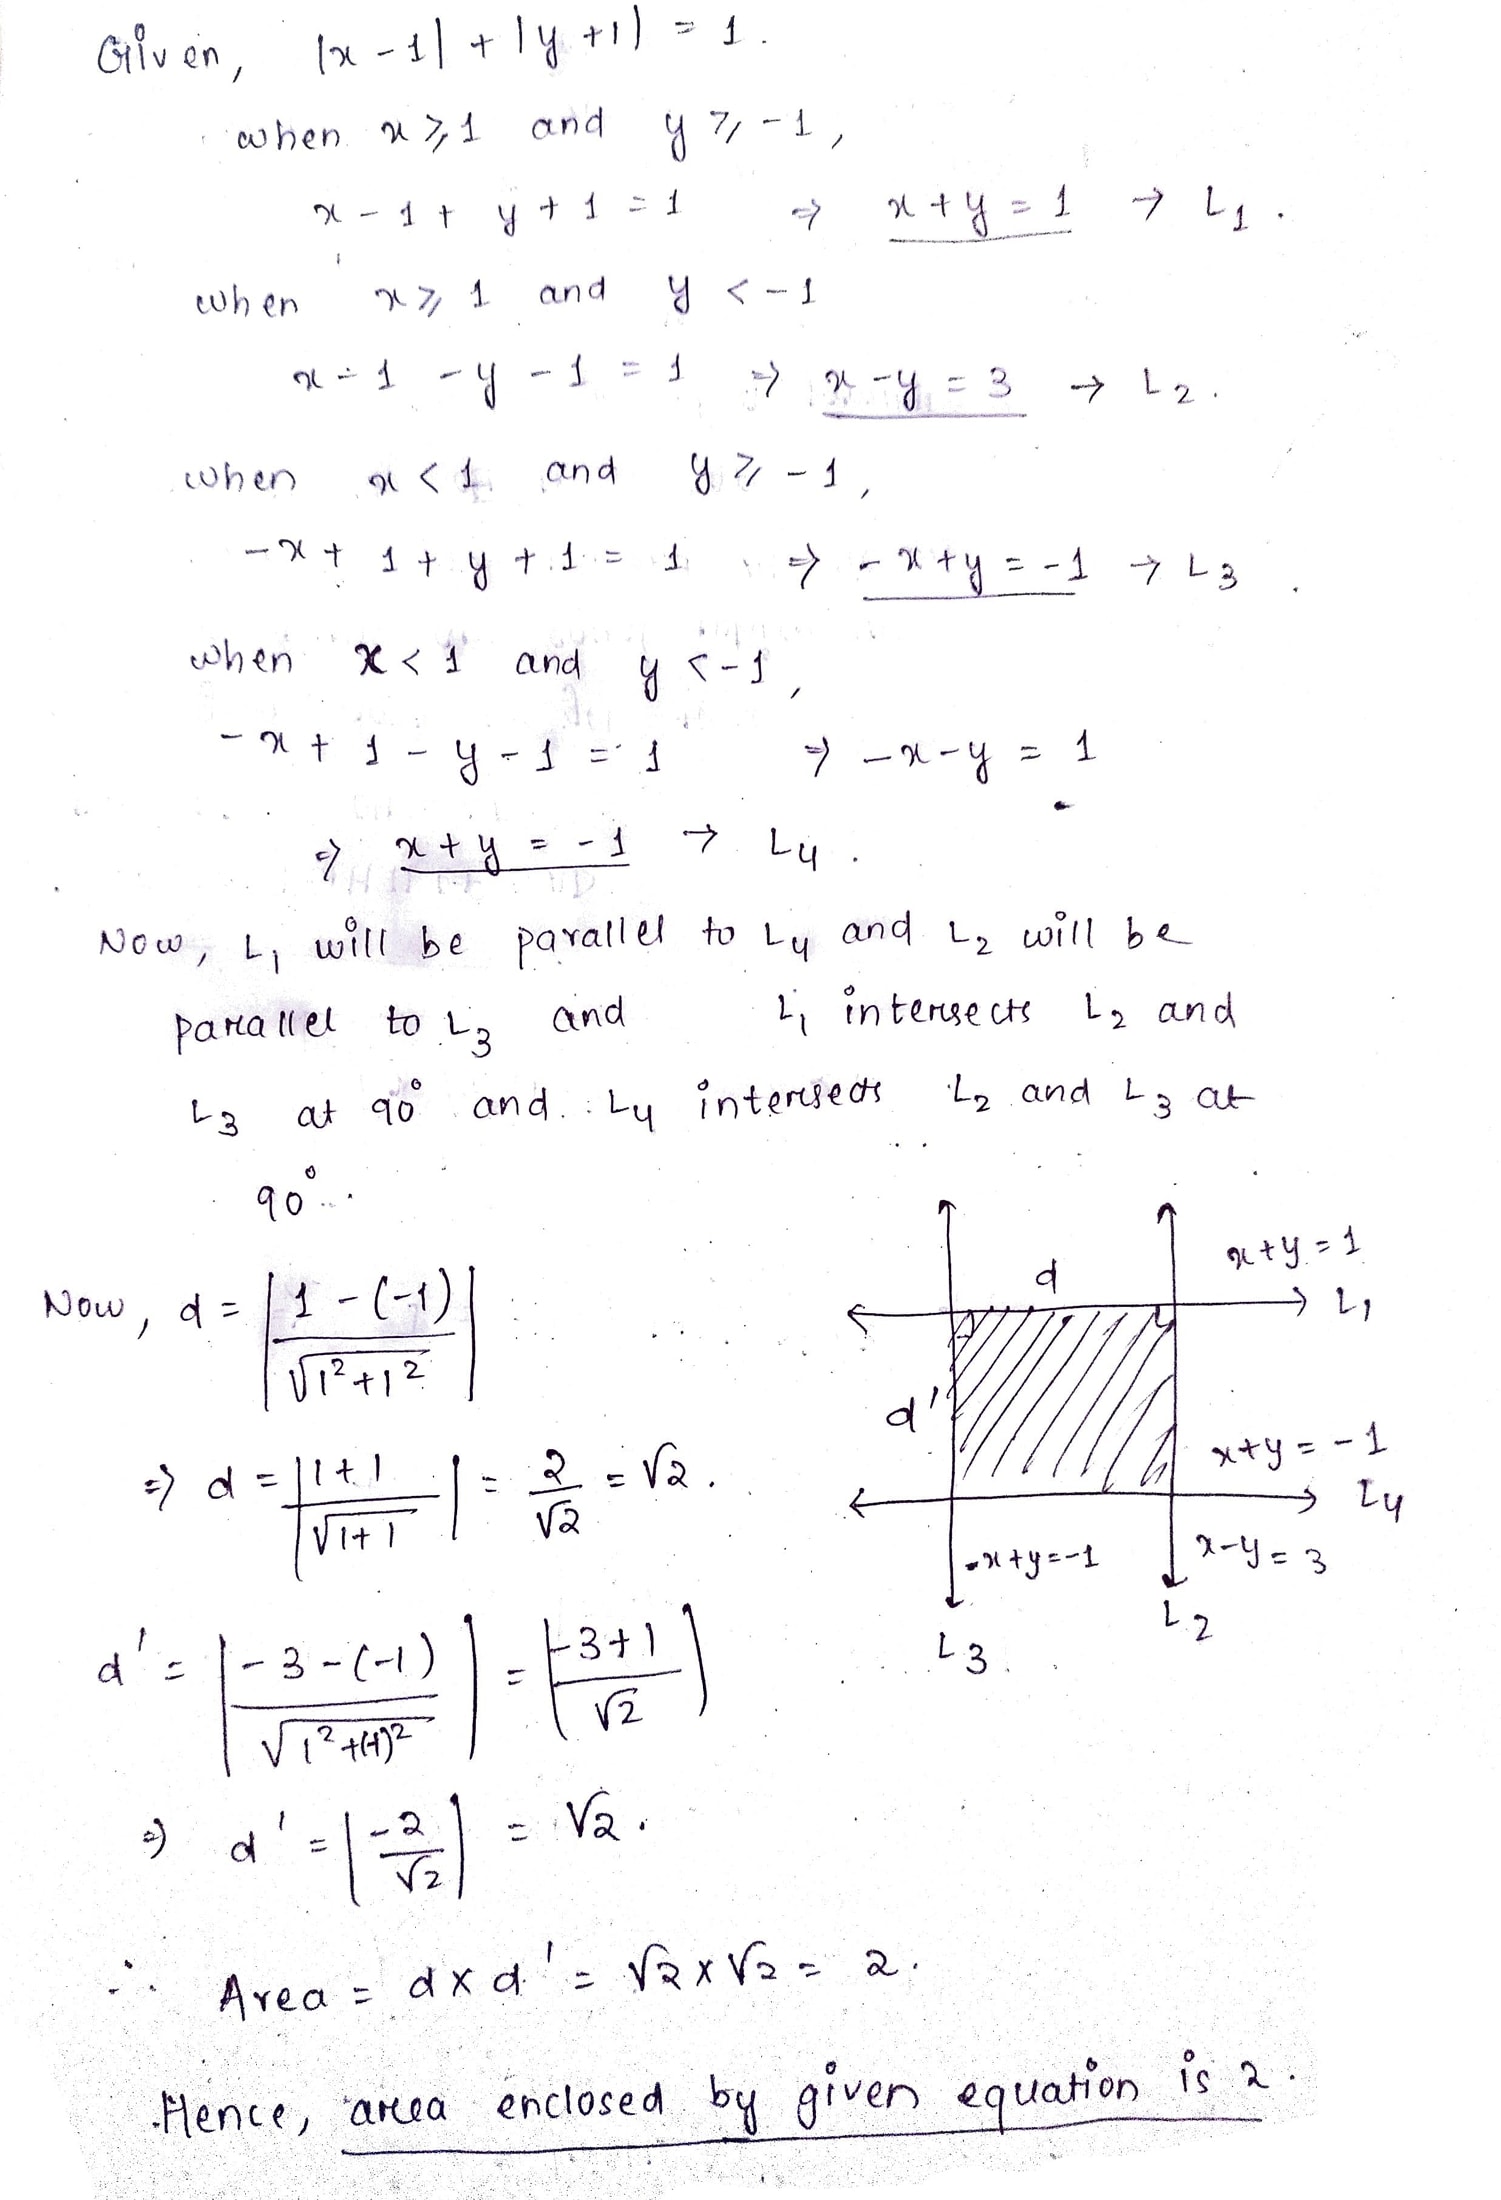 Given, |x - 1| + |y + 1| = 1.
when x ⩾ 1 and y ⩾ -1,
x - 1 + y + 1 = 1 ⇒ x + y = 1 → L1.
when x ⩾ 1 and y < -1
x - 1 - y - 1 = 1 ⇒ x - y = 3 → L2.
when x < 1 and y ⩾ -1,
-x + 1 + y + 1 = 1 ⇒ -x + y = -1 → L3.
when x < 1 and y < -1,
-x + 1 - y - 1 = 1 ⇒ -x - y = 1
⇒ x + y = -1 → L4.
Now, L1 will be parallel to L4 and L2 will be
parallel to L3 and L1 intersects L2 and
L3 at 90° and L4 intersects L2 and L3 at
90°.
Now, d = |(1 - (-1))/√(1² + 1²)|
⇒ d = |(1 + 1)/√(1 + 1)| = 2/√2 = √2.
d' = |(-3 - (-1))/√(1² + (-1)²)| = |(-3 + 1)/√2|
⇒ d' = |-2/√2| = √2.
d
x + y = 1
L1
d'
x + y = -1
L4
-x + y = -1
x - y = 3
L3
L2
∴ Area = d × d' = √2 × √2 = 2.
Hence, area enclosed by given equation is 2.